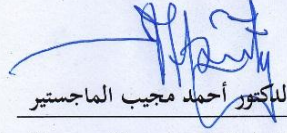 الدكتور أحمد مجيب الماجستير